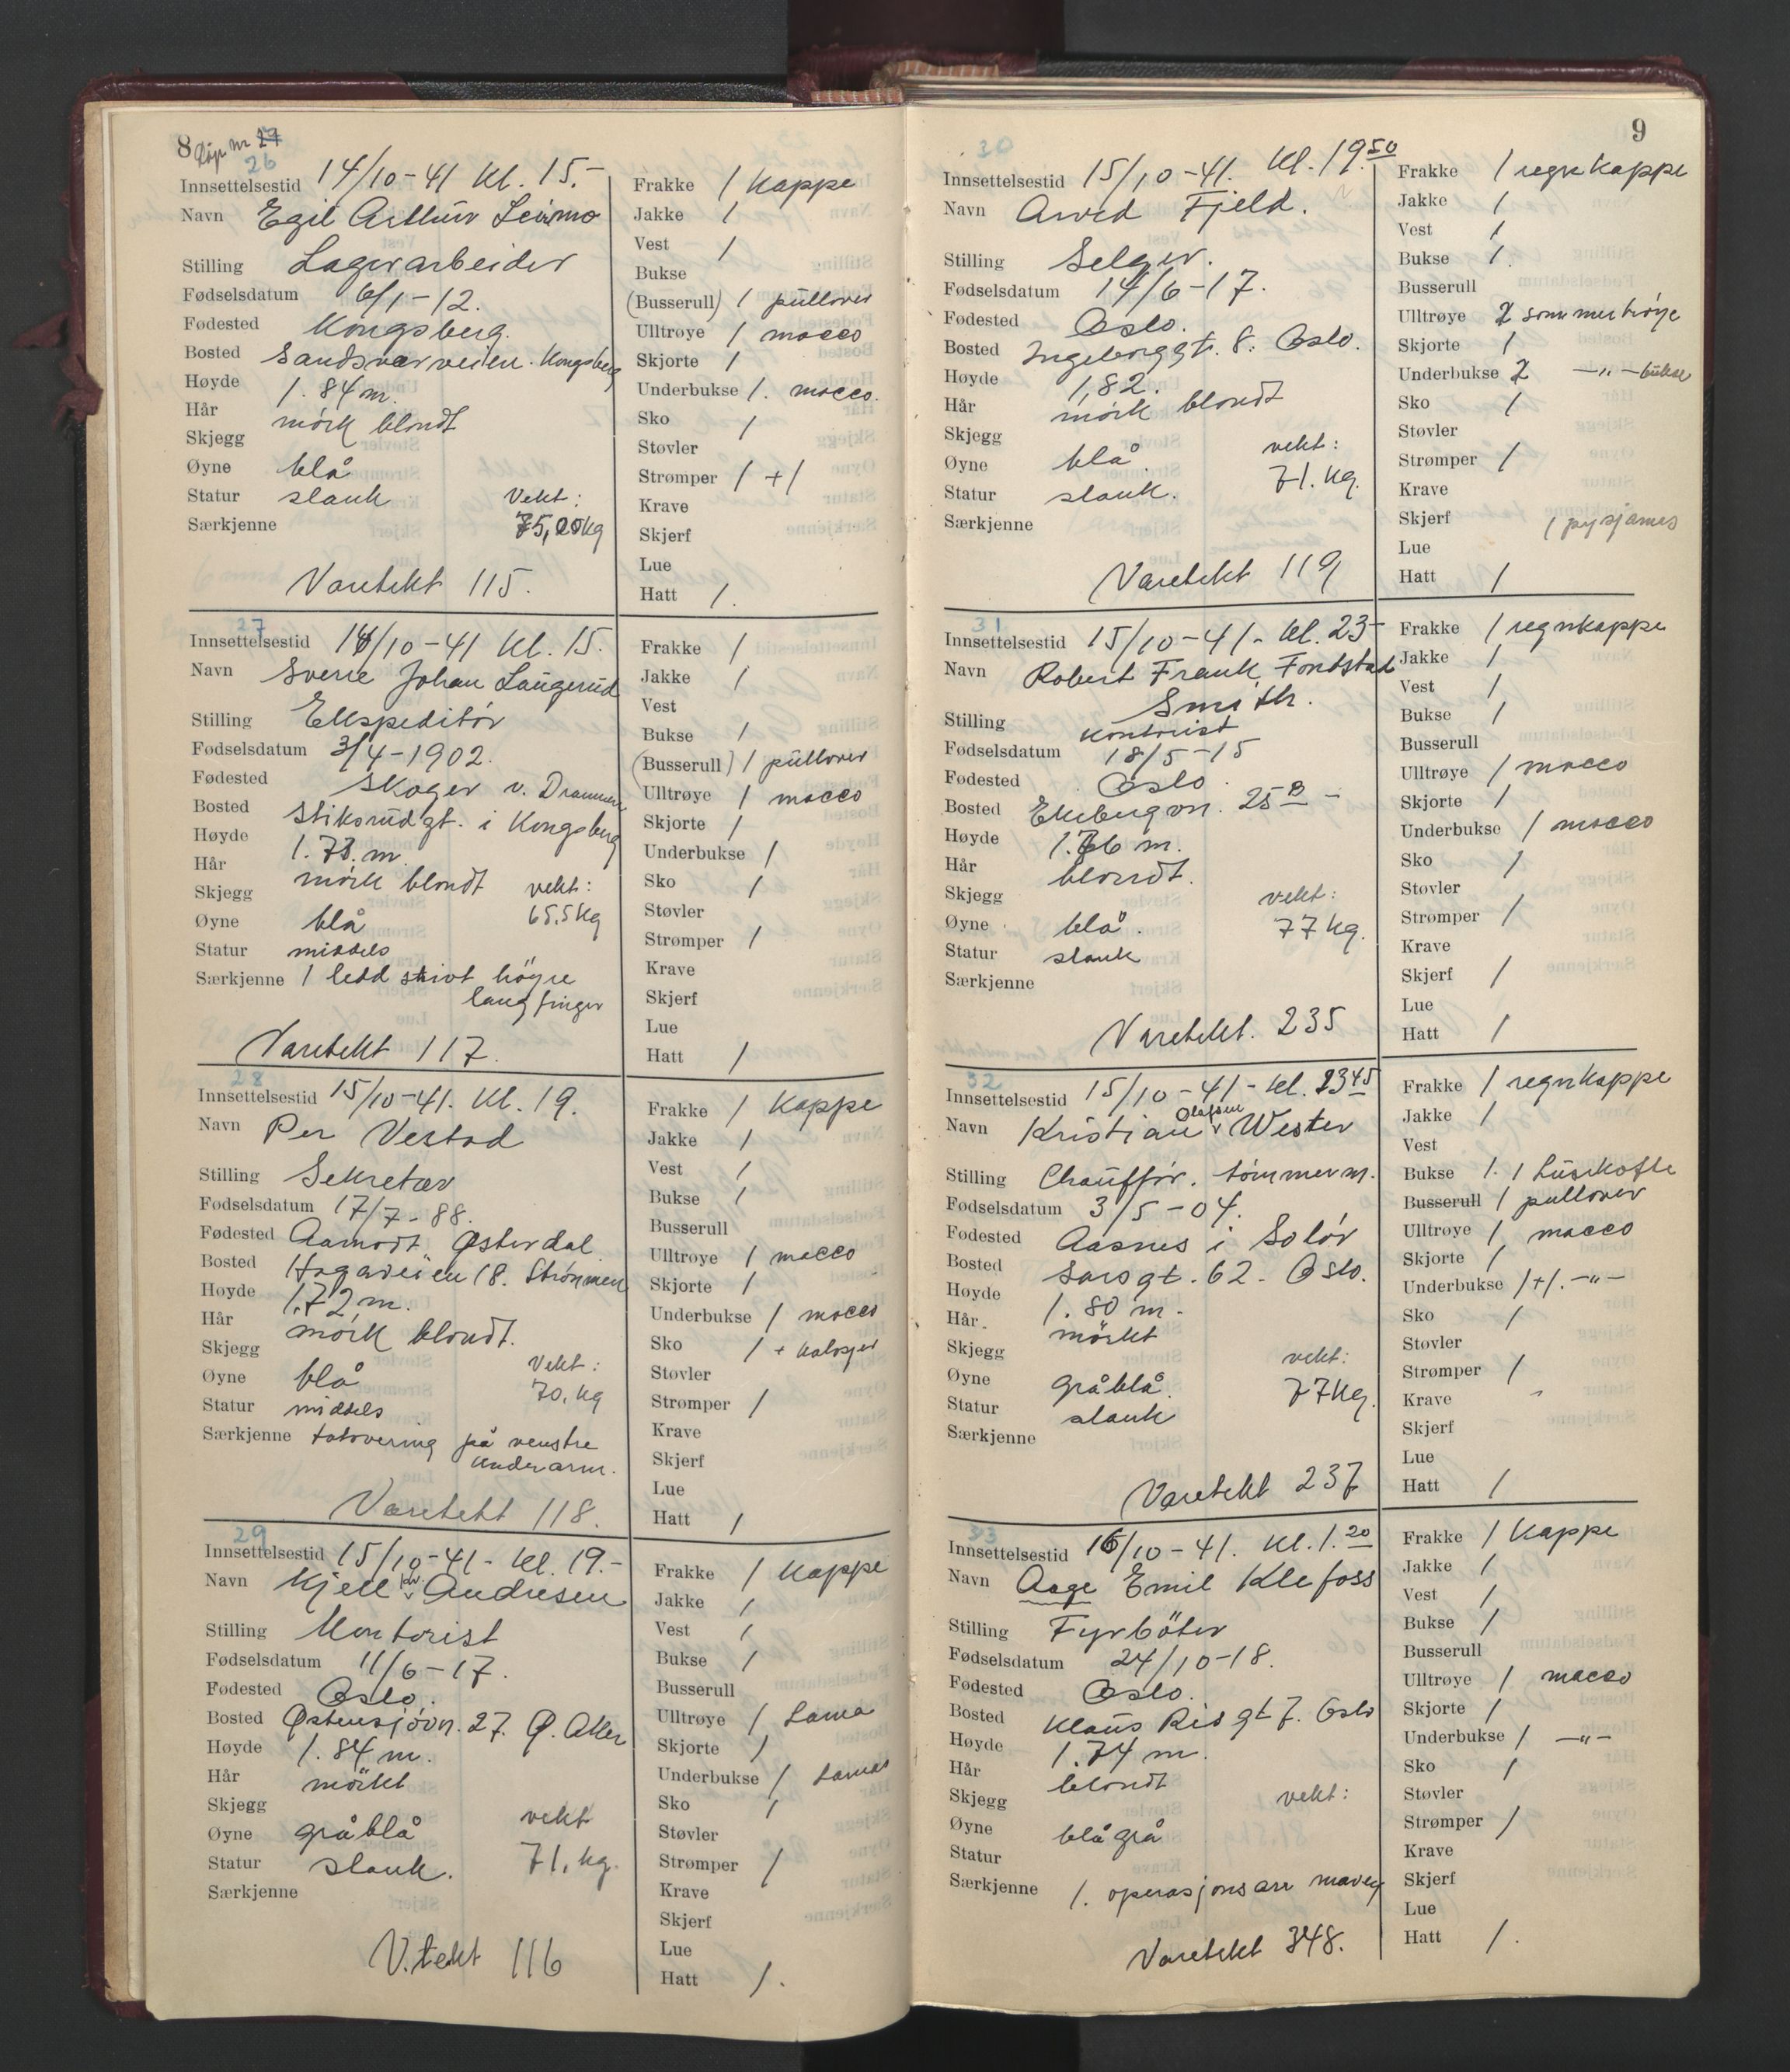 8 Løp nr 27
26
Innsettelsestid 14/10-41 Kl. 15.-
Navn Egil Arthur Leirmo
Stilling Lagerarbeider
Fødselsdatum 6/1-12.
Fødested Kongsberg.
Bosted Sandsværveien. Kongsberg
Høyde 1.84 m.
Hår mörk blondt
Skjegg
Øyne blå
Statur slank Vekt:
Særkjenne 75,20 kg
Varetekt 115.
Frakke 1 Kappe
Jakke 1
Vest 1
Bukse
(Busserull) 1 pullover
Ulltrøye 1 macco
Skjorte 1
Underbukse 1. macco.
Sko 1
Støvler
Strømper 1 + 1
Krave
Skjerf
Lue
Hatt 1.
27
Innsettelsestid 14/10-41 Kl. 15.
Navn Sverre Johan Laugerud
Stilling Ekspeditör
Fødselsdatum 3/4-1902.
Fødested Skoger v. Drammen
Bosted Stiksrudgt. i Kongsberg
Høyde 1.73. m.
Hår mörk blondt vekt:
Skjegg 65.5 kg
Øyne blå
Statur middels
Særkjenne 1 ledd stivt högre
langfinger
Varetekt 117.
Frakke 1
Jakke 1
Vest
Bukse 1
(Busserull) 1 pullover
Ulltrøye 1 macco
Skjorte 1
Underbukse 1
Sko 1
Støvler
Strømper 1
Krave
Skjerf
Lue
Hatt 1
28
Innsettelsestid 15/10-41. Kl. 19.
Navn Per Vestad
Stilling Sekretær
Fødselsdatum 17/7-88.
Fødested Aamodt Østerdal
Bosted Hagaveien 18. Strömmen
Høyde 1.72 m.
Hår mörk blondt.
Skjegg Vekt:
Øyne blå 70. kg
Statur middels
Særkjenne tatovering på venstre
underarm.
Varetekt 118.
Frakke 1 Kappe
Jakke 1
Vest 1
Bukse 1
Busserull
Ulltrøye 1 macco
Skjorte 1
Underbukse 1 macco
Sko 1 + kalosjer
Støvler
Strømper 1
Krave
Skjerf
Lue
Hatt 1
29
Innsettelsestid 15/10-41- kl. 19.-
Navn Kjell Andresen
Stilling Kontorist
Fødselsdatum 11/6-17.
Fødested Oslo.
Bosted Østensjövn. 27. Ø. Aker
Høyde 1.84 m.
Hår mörkt
Skjegg vekt
Øyne gråblå 71. kg.
Statur slank.
Særkjenne
V.tekt 116
Frakke 1 Kappe
Jakke 1
Vest 1
Bukse 1
Busserull
Ulltrøye 1 Lama
Skjorte 1
Underbukse 1 Lama
Sko 1
Støvler
Strømper 1
Krave
Skjerf
Lue
Hatt 1.
9
30
Innsettelsestid 15/10-41. Kl. 19.50
Navn Arvid Fjeld.
Stilling Selger.
Fødselsdatum 14/6-17.
Fødested Oslo.
Bosted Ingeborggt. 8. Oslo.
Høyde 1,82.
Hår mörk blondt
Skjegg vekt:
Øyne blå. 71. kg.
Statur slank.
Særkjenne
Varetekt 119
Frakke 1 regnkappe
Jakke 1
Vest 1
Bukse 1
Busserull
Ulltrøye 2 sommertröye
Skjorte 1
Underbukse 2 —"—bukse
Sko 1
Støvler
Strømper 1
Krave
Skjerf 1 pysjames
Lue
Hatt 1
31
Innsettelsestid 15/10-41- kl. 23-
Navn Robert Frank Fondstad
Smith.
Stilling Kontorist
Fødselsdatum 18/5-15
Fødested Oslo.
Bosted Ekebergvn. 25 B -
Høyde 1.76 m.
Hår blondt.
Skjegg vekt:
Øyne blå. 77 kg.
Statur slank
Særkjenne
Varetekt. 235
Frakke 1 regnkappe
Jakke 1
Vest 1
Bukse 1
Busserull
Ulltrøye 1 macco
Skjorte 1
Underbukse 1 macco
Sko 1
Støvler
Strømper 1
Krave
Skjerf 1
Lue
Hatt 1
32
Innsettelsestid 15/10-41- kl. 23 45
Olafsen
Navn Kristian v Wester
Stilling Chaufför. tömmerm.
Fødselsdatum 3/5-04.
Fødested Aasnes i Solör
Bosted Sarsgt. 62- Oslo.
Høyde 1.80 m-
Hår. mörkt
Skjegg vekt:
Øyne gråblå. 77 kg.
Statur slank
Særkjenne
Varetekt 237
Frakke 1 regnkappe
Jakke 1
Vest
Bukse 1. 1 Lusekofte
Busserull 1 pullover
Ulltrøye 1 macco
Skjorte 1
Underbukse 1+1.-"-
Sko 1
Støvler
Strømper 1
Krave
Skjerf
Lue
Hatt 1
33
Innsettelsestid 16/10-41. Kl. 1.20
Navn Aage Emil Klefoss
Stilling Fyrböter
Fødselsdatum 24/10-18.
Fødested Oslo.
Bosted Klaus Risgt 7. Oslo
Høyde 1.74 m.
Hår blondt
Skjegg vekt:
Øyne blågrå
Statur
Særkjenne 1. operasjonsarr maven
Varetekt 348.
Frakke 1 Kappe
Jakke 1
Vest 1
Bukse 1
Busserull
Ulltrøye 1 macco
Skjorte 1
Underbukse 1 —"—
Sko 1
Støvler
Strømper 1
Krave
Skjerf
Lue
Hatt 1.